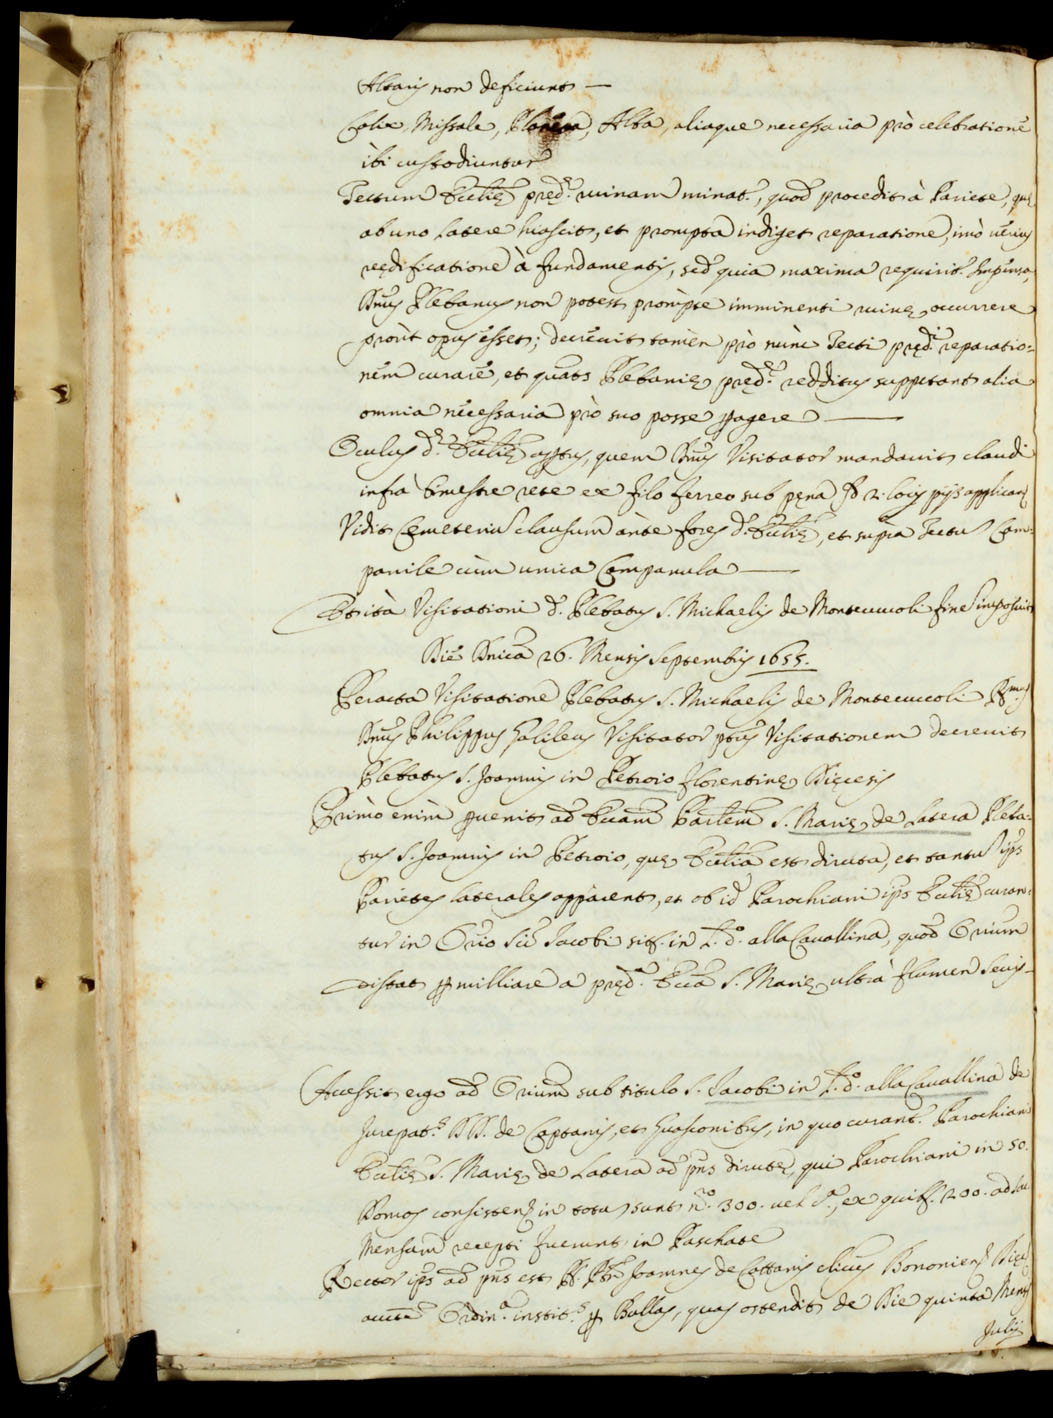 Altaris non deficiunt —
Calix, Missale, Planeta, Alba, aliaque necessaria prò celebratione
ibi custodiuntur
Tectum Ecclię pręd.ę ruinam minat.r, quod procedit à Pariete, quę
ab uno latere hiascit, et prompta indiget reparatione, imò verius
rędificatione à fundamentis, sed quia maxima requirit.r Impensa,
Dnus Plebanus non potest prompte imminenti ruinę occurrere
proùt opus esset; decrevit tamen prò nunc Tecti pręd.i reparatio=
nem curare, et quats Plebanię pręd.ę redditus suppetant alia
omnia necessaria prò suo posse pagere —
Oculus d.ę Ecclię aptus, quem Dnus Visitator mandavit claudi
infrà bimestre rete ex filo ferreo sub pęna 2. locis pijs applicand
Vidit Cemeteriu clausum ànte fores d.ę Ecclię, et suprà Tectu Cam=
panile cùm unica Campanula —
Et ità Visitationi d. Plebatus S. Michaelis de Montecuccoli fine imposuit
Die Dnica 26. Mensis Septembris 1655.
Peracta Visitatione Plebatus S. Michaelis de Montecuccoli R.mus
Dnus Philippus Galileus Visitator ptus Visitationem decrevit
Plebatus S. Joannis in Petroio Florentinę Dięcesis
Primò enim pvenit ad Eccam Parlem S. Marię de Latera Pleba=
tus S. Joannis in Petroio, quę Ecclia est diruta, et tantu ips
Parietes laterales apparent, et ob id Parochiani ips Ecclię curan=
tur in Orio Sci Jacobi sit. in L. d.o alla Cavallina, quod Orium
distat p milliare a pręd.a Ecca S. Marię ultrà flumen Sevis —
Accessit ergo ad Orium sub titulo S. Jacobi in L. d.o alla Cavallina de
Jurepat.s DD. de Captanis, et Guasconibus, in quo curant.r Parochiani
Ecclię S. Marię de Latera ad pns dirutę, qui Parochiani in 50.
Domos consistens in totu sunt n.o 300. vel c.a, ex quib. 200. ad sac
Mensam recepti fuerunt in Paschate
Rector ips ad pns est R. Pr Joannes de Cattanis clicus Bononiens Dięc
auctę Ordin.a instit.s p Bullas, quas ostendit de Die quinta Mens
Julij